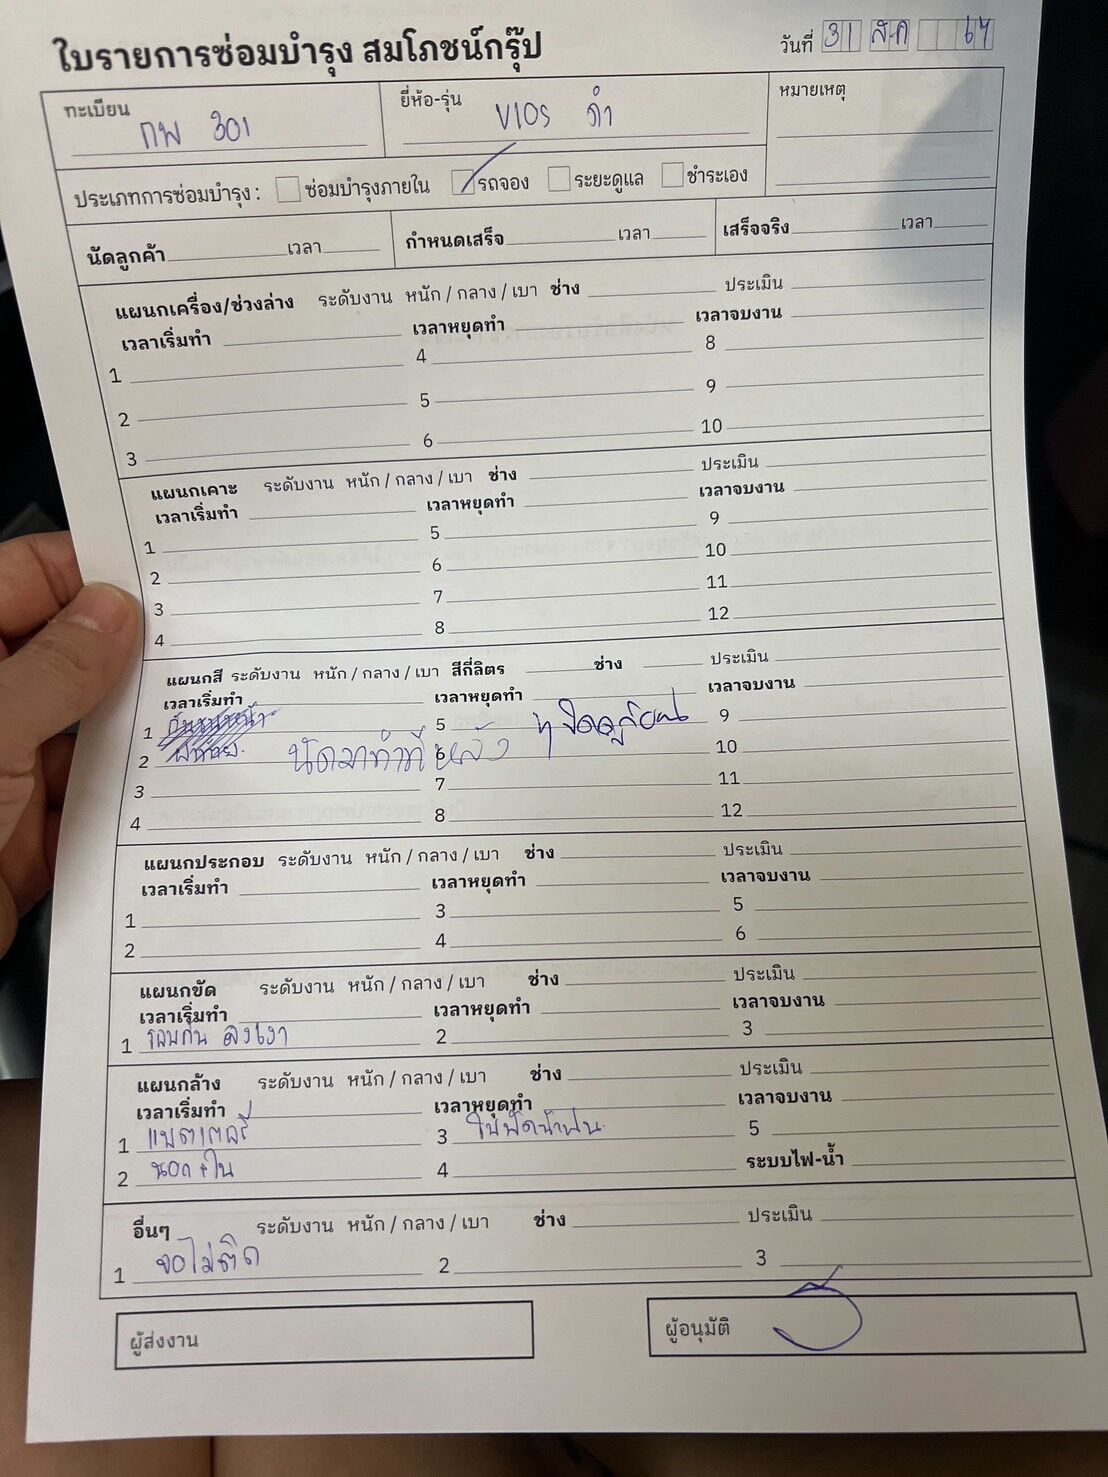 ใบรายการซ่อมบำรุง สมโภชน์กรุ๊ป
วันที่ 31 ส.ค 67
ทะเบียน กพ 301
ยี่ห้อ-รุ่น VIOS ดำ
หมายเหตุ
ประเภทการซ่อมบำรุง : ซ่อมบำรุงภายใน รถจอง ระยะดูแล ชำระเอง
นัดลูกค้า เวลา กำหนดเสร็จ เวลา เสร็จจริง เวลา
แผนกเครื่อง/ช่วงล่าง ระดับงาน หนัก / กลาง / เบา ช่าง ประเมิน
เวลาเริ่มทำ เวลาหยุดทำ เวลาจบงาน
1 4 8
2 5 9
3 6 10
แผนกเคาะ ระดับงาน หนัก / กลาง / เบา ช่าง ประเมิน
เวลาเริ่มทำ เวลาหยุดทำ เวลาจบงาน
1 5 9
2 6 10
3 7 11
4 8 12
แผนกสี ระดับงาน หนัก / กลาง / เบา สีกี่ลิตร ช่าง ประเมิน
เวลาเริ่มทำ เวลาหยุดทำ เวลาจบงาน
1 5 9
2 นัดมาทำทีหลัง 6 10
3 7 11
4 8 12
แผนกประกอบ ระดับงาน หนัก / กลาง / เบา ช่าง ประเมิน
เวลาเริ่มทำ เวลาหยุดทำ เวลาจบงาน
1 3 5
2 4 6
แผนกขัด ระดับงาน หนัก / กลาง / เบา ช่าง ประเมิน
เวลาเริ่มทำ เวลาหยุดทำ เวลาจบงาน
1 รอบคัน ลงเงา 2 3
แผนกล้าง ระดับงาน หนัก / กลาง / เบา ช่าง ประเมิน
เวลาเริ่มทำ เวลาหยุดทำ เวลาจบงาน
1 แบตเตอรี่ 3 ใบปัดน้ำฝน 5
2 นอก + ใน 4 ระบบไฟ-น้ำ
อื่นๆ ระดับงาน หนัก / กลาง / เบา ช่าง ประเมิน
1 จอไม่ติด 2 3
ผู้ส่งงาน
ผู้อนุมัติ